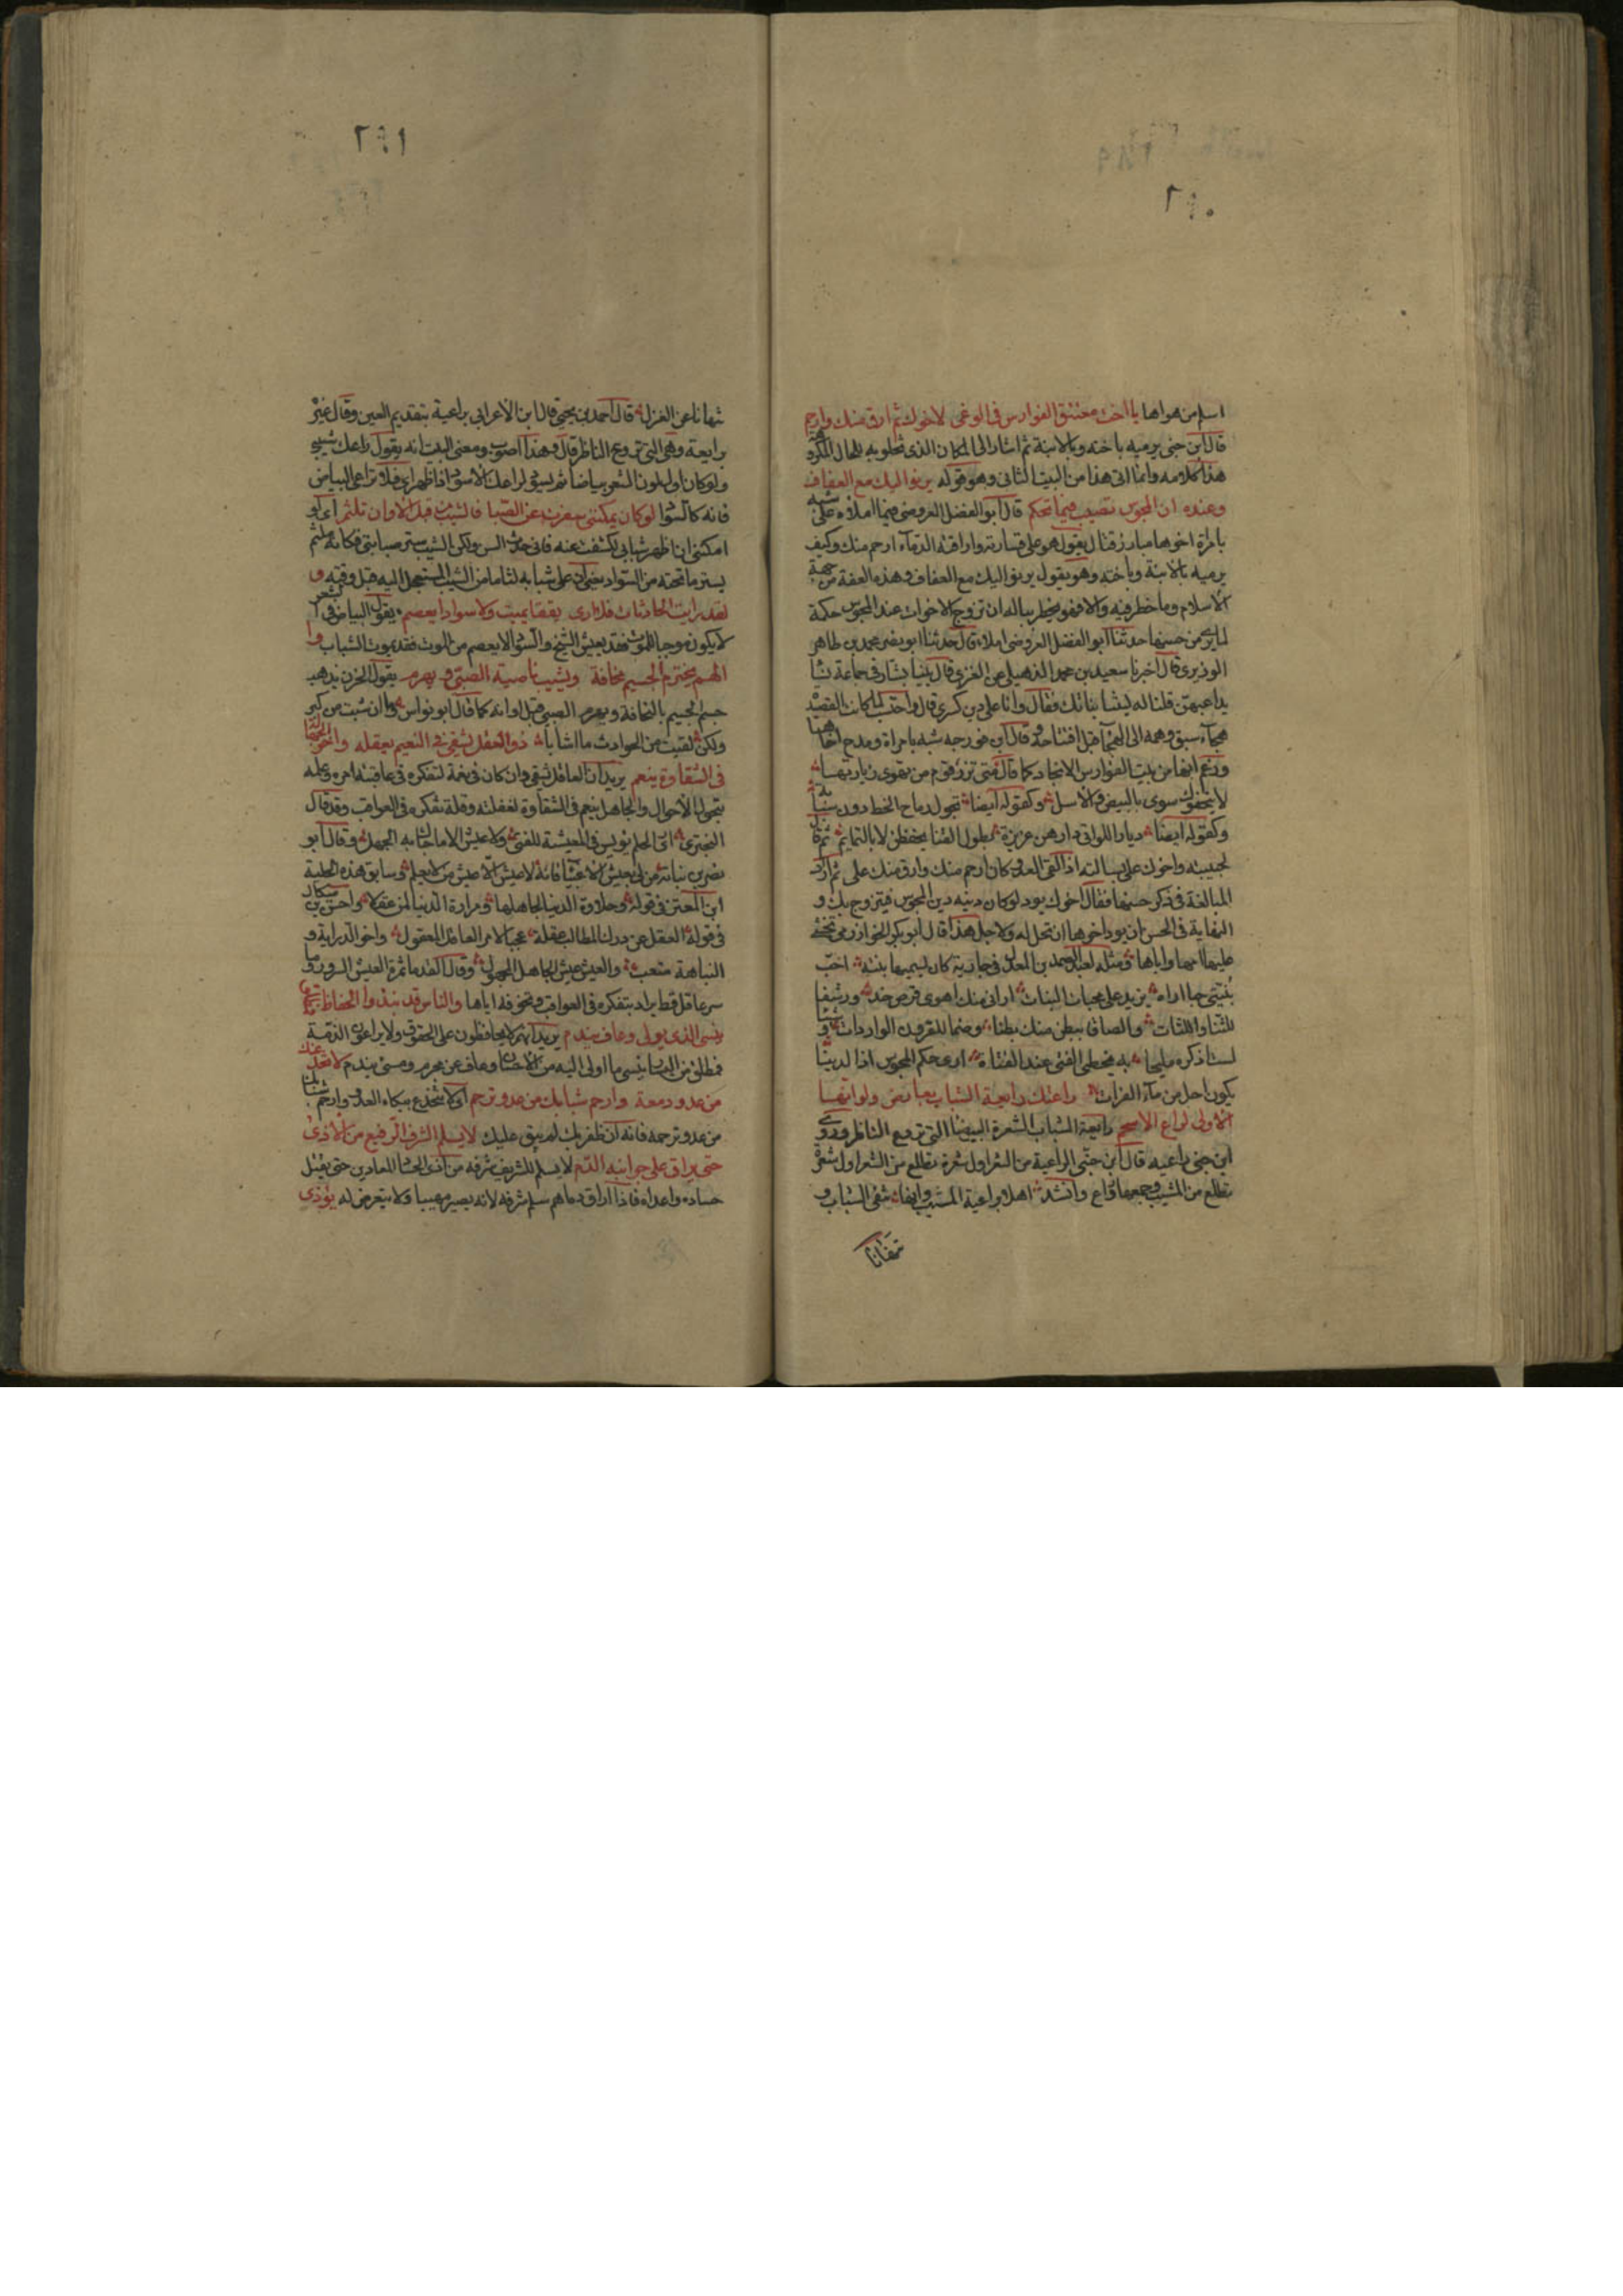 ٢٩٠
اسلم من هواها يا اخت معتنق الفوارس فى الوغى لاخوك ثم ارق منك وارحم
قال ابن جنى يرميه باخته وبالابنة ثم اشار الى المكان الذى تخلو به للحال المكروه
هذا كلامه وانما اتى هذا من البيت الثانى وهو قوله يرنو اليك مع العفاف
وعنده ان المجوس تصيب فيما تحكم قال ابو الفضل العروضى فيما املاه على شبه
بامراة اخوها مبارز قتال يقول هو على قساوته واراقته الدماء ارحم منك وكيف
يرميه بالابنة وباخته وهو يقول يرنو اليك مع العفاف وهذه العفة من جهة
الاسلام وما خطر فيه والا فهو يخطر بباله ان تزوج الاخوات عند المجوس حكمة
لما يرى من حسنها حدثنا ابو الفضل العروضى املاء قال حدثنا ابو نصر محمد بن طاهر
الوزيرى قال اخبرنا سعيد بن محمد الذهيلى عن العنزى قال بينا بشار فى جماعة نسا
يداعبهن قلنا له ليتنا بناتك فقال وانا على دين كسرى قال
هجاء سبق وهمه الى الهجاء قبل افتتاحه وقال ابن فورجه شبه بامراة ومدح اخاها
وزعم انها من بيت الفوارس الانجاد كما قال متى تزر قوم من تهوى زيارتها
لا يتحفوك سوى بالبيض والاسل وكقوله ايضا تحول رماح الخط دون سبائه
وكقوله ايضا ديار اللواتى دارهن عزيزة بطول القنا يحفظن لا بالتمايم ثم قال
لحبيبته واخوك على بسالته اذا لقى العدو كان ارحم منك وارق منك على ثم اراد
المبالغة فى ذكر حسنها فقال اخوك يود لو كان دينه دين المجوس فيتزوج بك و
النهاية فى الحسن ان يود اخوها ان تحل له ولاجل هذا قال ابو بكر الخوارزمى تخشى
عليها امها واباها ومثله لعبد الصمد بن المعذل فى جارية كان يسميها بنته احب
بنيتى حبا اراه يزيد على محبات البنات ارانى منك اهوى قرص خد ورشفا
للثنايا واللثات والصاق ببطن منك بطنا وضما للقرون الواردات وشيا
لست اذكره مليحا به يحظى الفتى عند الفتاة ارى حكم المجوس اذا لدينا
يكون احل من ماء الفرات راعتك رايعة الشباب بعارضى ولو انها
الاولى لراع الاسحم رايعة الشباب الشعرة البيضا التى تروع الناظر وروى
ابن جنى راعيه قال ابن جنى الراعية من الشعر اول شعرة تطلع من الشعر اول شعرة
تطلع من المشيب وجمعها رواع وانشد اهلا براعية المشيب وانها تنفى الشباب و
تنهانا
٢٩١
تنهانا عن الغزل قال احمد بن يحيى قال ابن الاعرابى براعية بتقديم العين وقال غيره
برايعة وهى التى تروع الناظر قال وهذا اصوب ومعنى البيت انه يقول راعك شيبى
ولو كان اول لون الشعر بياضا ثم يسود لراعك الاسود اذا ظهر اى فلا تراعى البياض
فانه كالسواد لو كان يمكننى سفرت عن الصبا فالشيب من قبل الاوان تلثم اى لو
امكننى ان اظهر شبابى لكشفت عنه فانى حدث السن ولكن الشيب ستر صبابتى فكانه ملثم
يستر ما تحته من السواد يعنى ان على شبابه لثاما من الشيب المستعجل اليه قبل وقته و
لقد رايت الحادثات فلا ارى يققا يميت ولا سوادا يعصم يقول البياض فى الشعر
لا يكون موجبا للموت فقد يعيش الشيخ والسواد لا يعصم من الموت فقد يموت الشباب وا
الهم يخترم الجسيم نحافة ويشيب ناصية الصبى ويهرم يقول الحزن يذهب
جسم الجسيم بالنحافة ويهرم الصبى قبل اوانه كما قال ابو نواس وما ان شبت من كبر
ولكن لقيت من الحوادث ما اشابا ذو العقل يشقى فى النعيم بعقله واخو الجهالة
فى الشقاوة ينعم يريد ان العاقل شقى وان كان فى نعمة لتفكره فى عاقبة امره وعلمه
بتحول الاحوال والجاهل ينعم فى الشقاوة لغفلته وقلة تفكره فى العواقب وقد قال
البحترى ارى الحلم بؤسى فى المعيشة للفتى ولا عيش الا ما حباك به الجهل وقال ابو
نصر بن نباتة من لى بعيش الاغبيا فانه لا عيش الا عيش من لا يعلم وسابق هذه الحلبة
ابن المعتز فى قوله وحلاوة الدنيا لجاهلها ومرارة الدنيا لمن عقلا واحسن
فى قوله العقل عن درك المطالب عقلة عجبا لامر العاقل المعقول واخو الدراية و
النباهة متعب والعيش عيش الجاهل المجهول وقال القدما ثمرة العيش السرور وما
سر عاقل قط يراد بتفكره فى العواقب وتخوفه اياها والناس قد نبذوا الحفاظ فمطلق
ينسى الذى يولى وعاف يندم يريد انهم لا يحافظون على الحقوق ولا يراعون الذمة
فمطلق من الاسار ينسى ما اولى اليه من الاحسان وعاف عن مجرم ومسئ يندم لا يخدعنك
من عدو دمعة وارحم شبابك من عدو ترحم اى لا تنخدع ببكاء العدو وارحم شبابك
من عدو ترحمه فانه ان ظفر بك لم يبق عليك لا يسلم الشرف الرفيع من الاذى
حتى يراق على جوانبه الدم لا يسلم للشريف شرفه من اذى الحساد المعادين حتى يقتل
حساده واعداه فاذا اراق دماهم سلم شرفه لانه يصير مهيبا فلا يتعرض له يؤذى